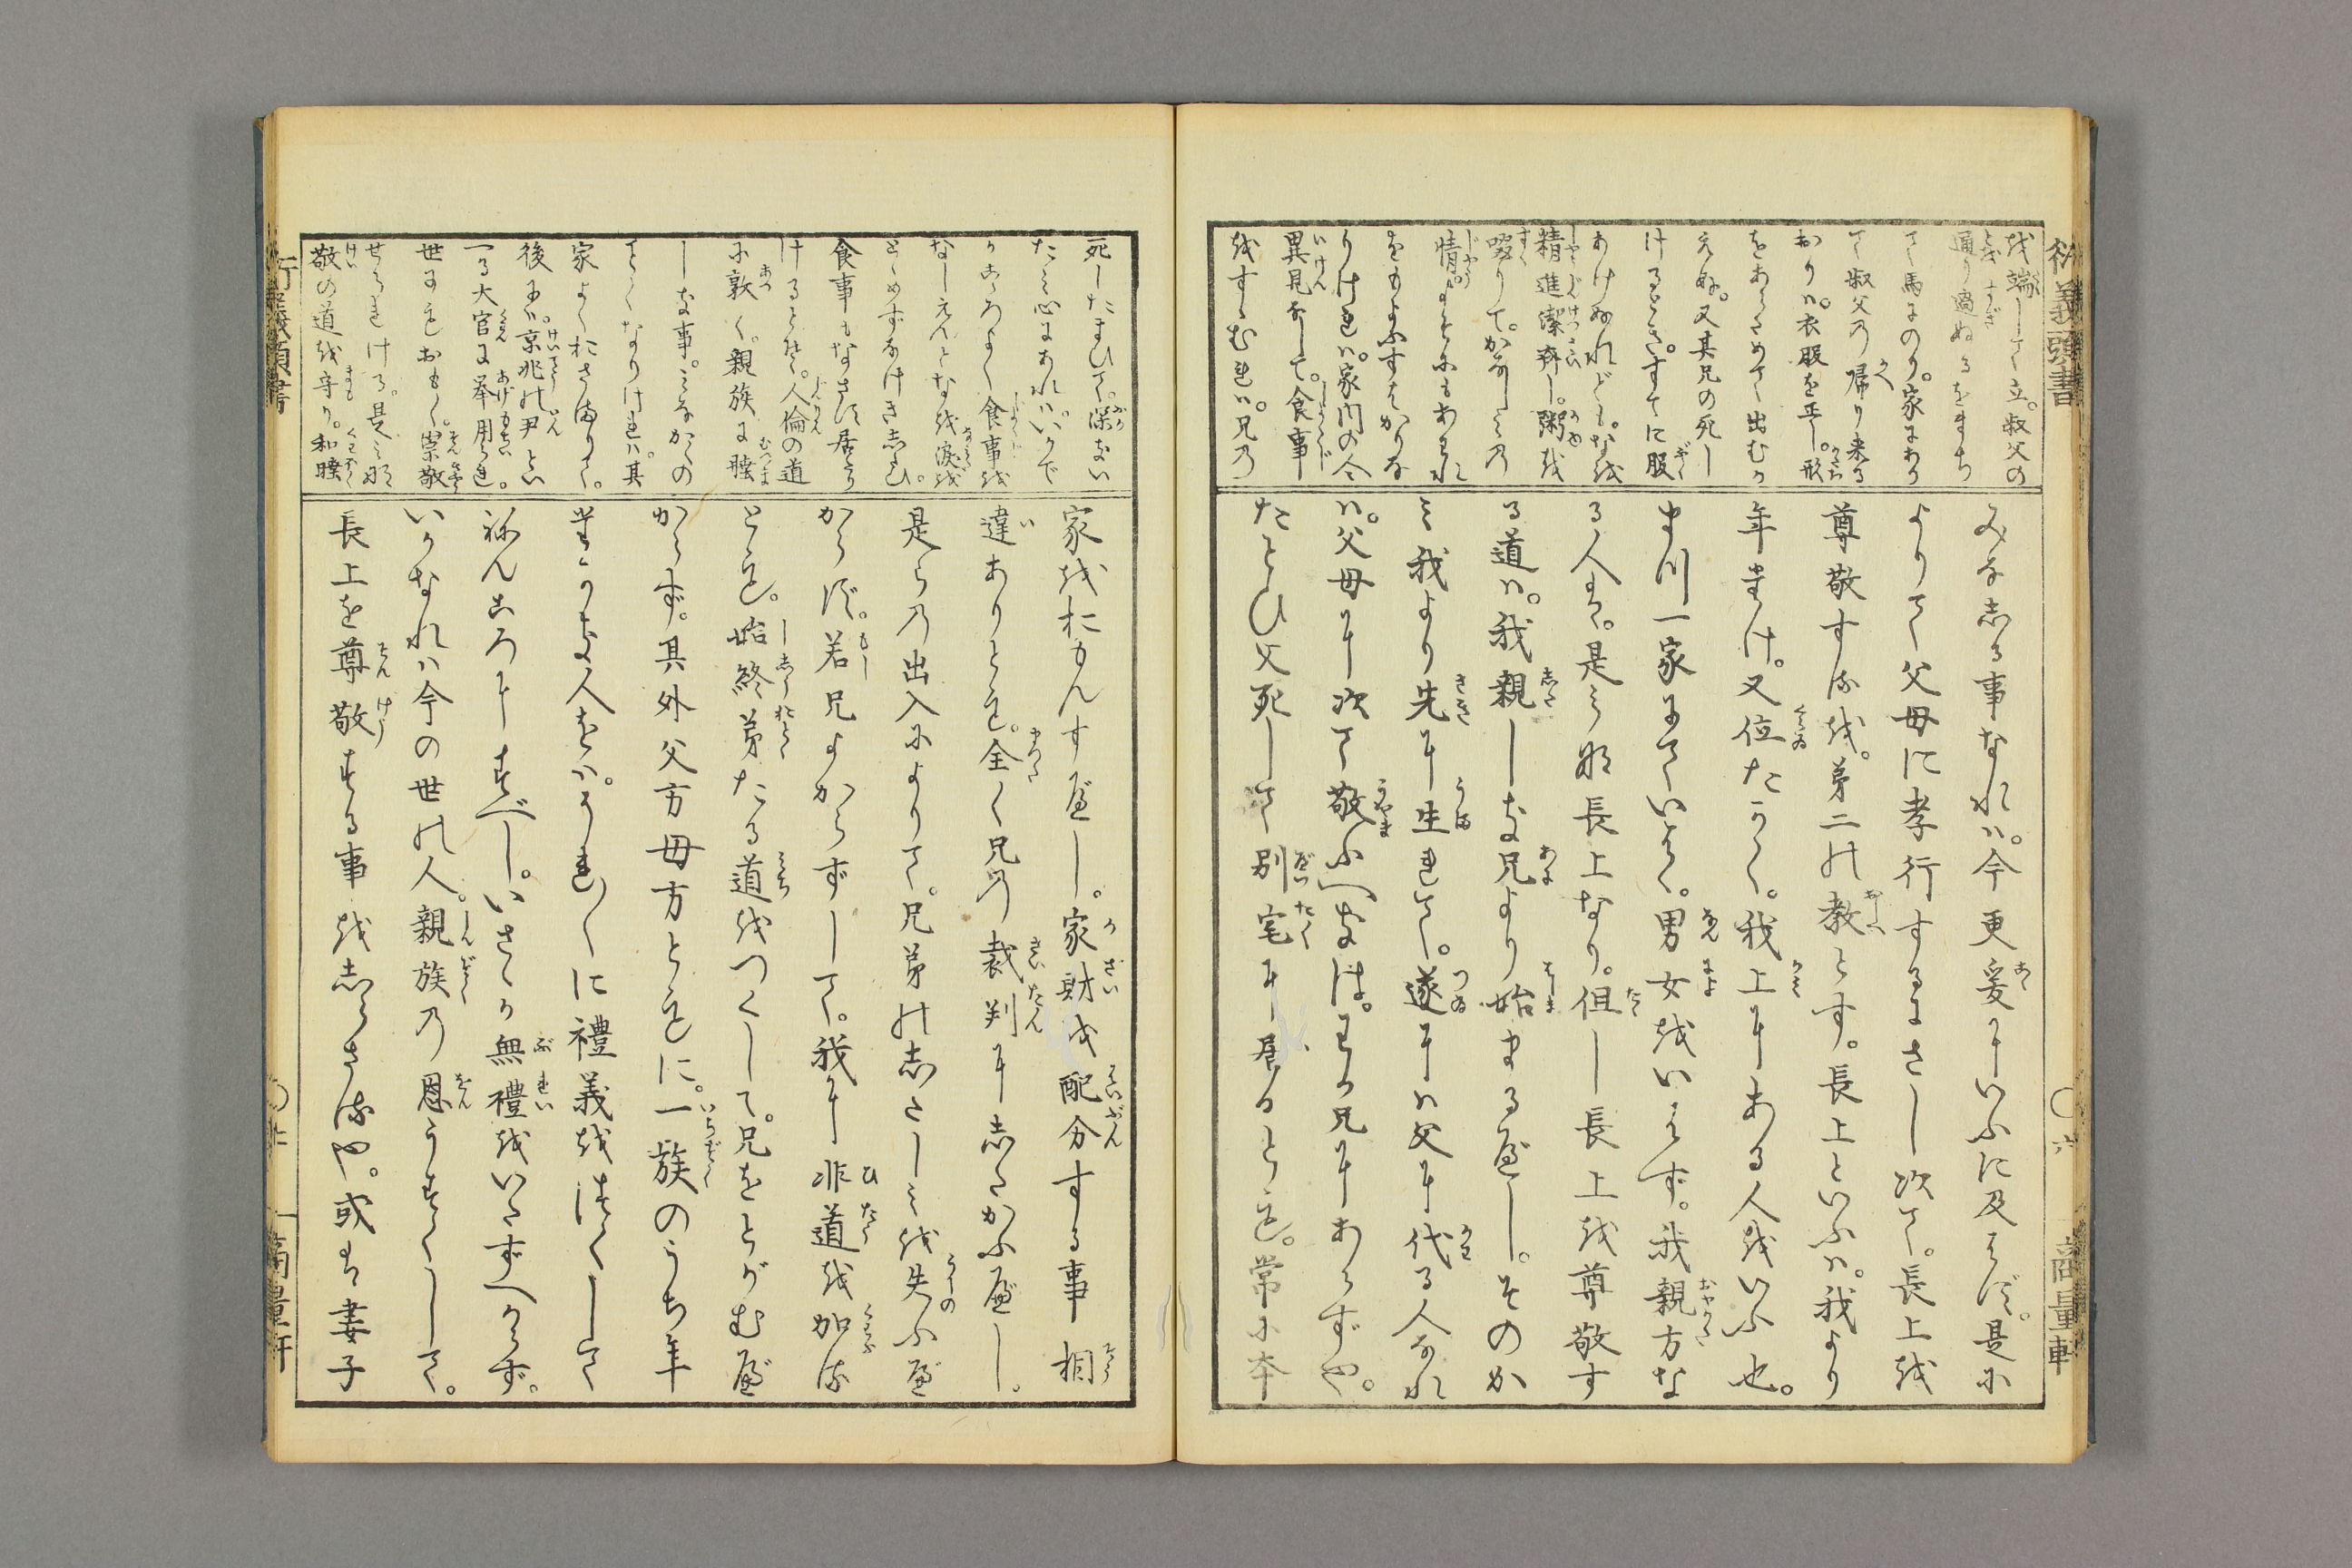 衍義頭書
を端して立。叔父の
通り過ぬるをまち
て馬にのり。家にあり
て叔父の帰り来る
おりハ。衣服を正し。形
をあらためて出むか
えぬ。又其兄の死し
けるとき。すてに服
あけぬれども。なを
精進潔斎し。粥を
啜りて。かなしミの
情。よそにもあまれ
をもよふすはかりな
りけれバ。家内の人
異見なして。食事
をすゝむれバ。兄の
みな志る事なれバ。今更爰にいふに及ハず。是に
よりて父母に孝行するにさし次て。長上を
尊敬するを。第二の教とす。長上といふハ。我より
年たけ。又位たかく。我上にある人をいふ也。
まづ一家にていはゞ。男女をいはず。我親方な
る人は。是ミな長上なり。但し長上を尊敬す
る道ハ。我親しき兄より始まるべし。そのか
ミ我より先に生れて。遂にハ父に代る人なれ
ハ。父母に次て敬ふべきは。わが兄にあらずや。
たとひ父死して別宅に居るとも。常に本
〇六
商量軒
死したまひて。深ない
たミ心にあれバ。いかで
かこゝろよく食事を
なしえんとなを涙を
とゞめずなけき志たひ。
食事もなさず居たり
けるとぞ。人倫の道
に敦く。親族に睦
しき事。ミなかくの
ことくなりけれバ。其
家よくおさまりて。
後にハ京兆の尹とい
へる大官に挙用られ。
世にもおもく。崇敬
せられける。是ミな
敬の道を守り。和睦
家をおもんずべし。家財を配分する事相
違ありとも。全く兄の裁判に志たかふべし。
是らの出入によりて。兄弟の志たしミを失ふべ
からず。若兄よからずして。我に非道を加る
とも。始終弟たる道をつくして。兄をとがむべ
からず。其外父方母方ともに。一族のうち年
たかき人をバ。うれ〳〵に禮義をはづくして
ねんころにすべし。いさゝか無禮をいたすべからず。
いかなれハ今の世の人。親族の恩うすくして。
長上を尊敬する事を志らざるや。或は妻子